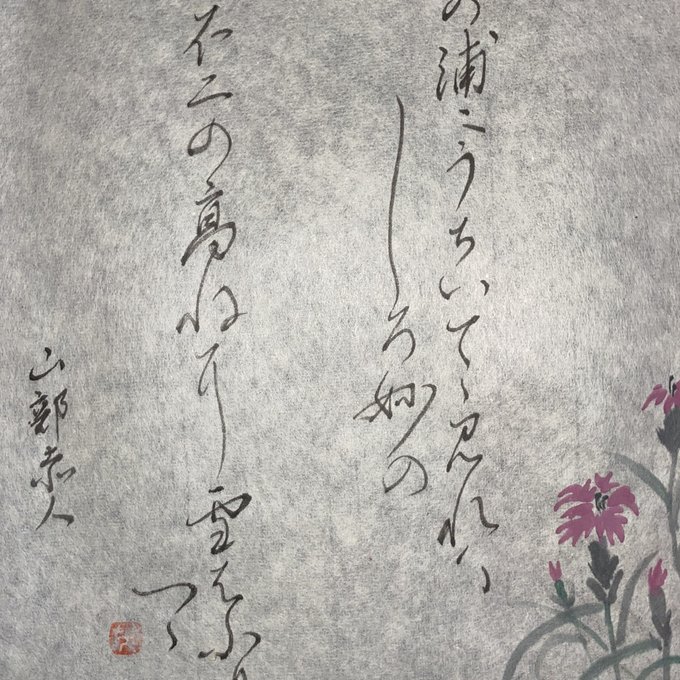 の浦ニうちいてゝ見れハ
しろ妙の
不二の高ねに雪はふり
つゝ
山部赤人